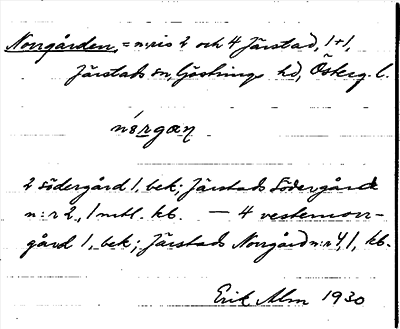 Norrgården, = n:ris 2 och 4 Järstad, 1+1,
Järstads sn, Göstrings hd, Österg. l.
nórgæn
2 södergård 1, bek; Järstads Södergård
n:r 2, 1 mtl. kb. — 4 vesternorr-
gård 1, bek; Järstads Norrgård n:r 4, 1, kb.
Erik Alm 1930